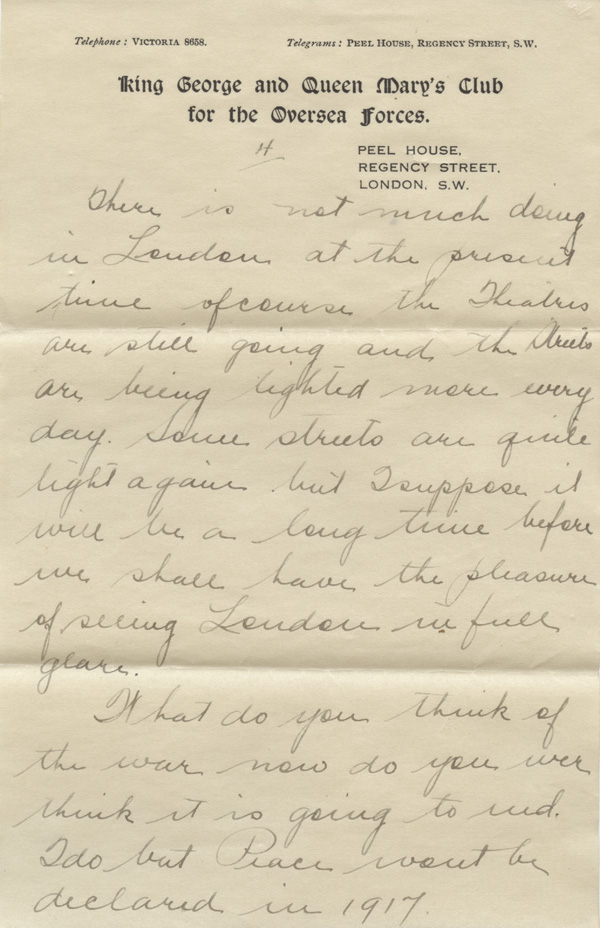 Telephone: VICTORIA 8658. Telegrams: PEEL HOUSE, REGENCY STREET, S.W.
King George and Queen Mary's Club
for the Oversea Forces.
4
PEEL HOUSE,
REGENCY STREET,
LONDON, S.W.
There is not much doing
in London at the present
time ofcourse the Theatres
are still going and the Streets
are being lighted more every
day. Some streets are quite
light again but I suppose it
will be a long time before
we shall have the pleasure
of seeing London in full
glare.
What do you think of
the war now do you ever
think it is going to end.
I do but Peace wont be
declared in 1917.